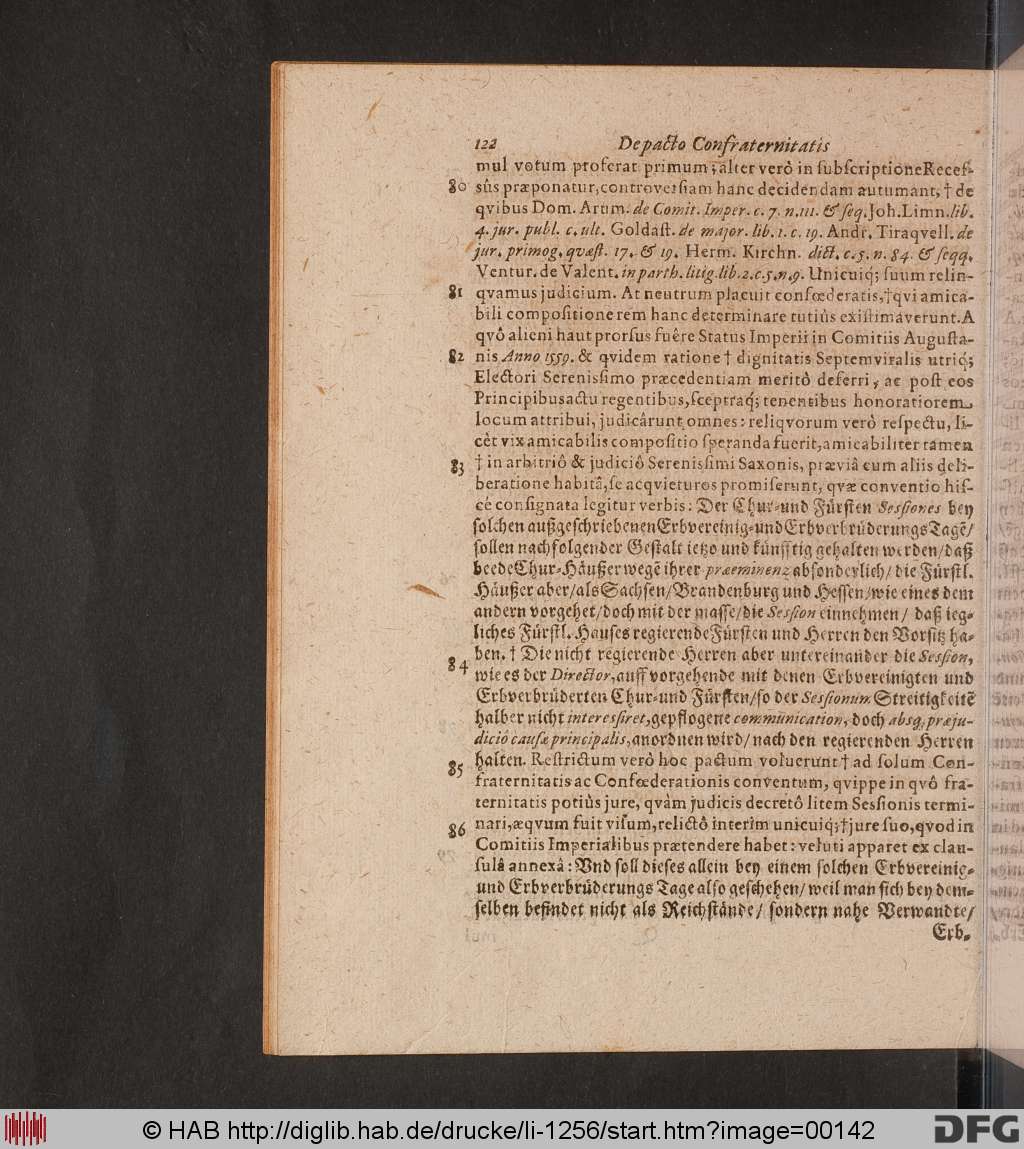 122 De pacto Confraternitatis
mul votum proferat primum; alter verò in subscriptione Reces-
80 sûs præponatur, controversiam hanc decidendam autumant, † de
qvibus Dom. Arum. de Comit. Imper. c. 7. n. 111. & seq. Joh. Limn. lib.
4. jur. publ. c. ult. Goldast. de major. lib. 1. c. 19. Andr. Tiraqvell. de
jur. primog. qvæst. 17. & 19. Herm. Kirchn. dict. c. 5. n. 84. & seqq.
Ventur. de Valent. in parth. litig. lib. 2. c. 5. n. 9. Unicuiq; suum relin-
81 qvamus judicium. At neutrum placuit confœderatis, † qvi amica-
bili compositione rem hanc determinare tutiùs existimaverunt. A
qvô alieni haut prorsus fuêre Status Imperii in Comitiis Augusta-
82 nis Anno 1559. & qvidem ratione † dignitatis Septemviralis utriq;
Electori Serenissimo præcedentiam meritò deferri, ac post eos
Principibus actu regentibus, sceptraq; tenentibus honoratiorem
locum attribui, judicârunt omnes: reliqvorum verò respectu, li-
cèt vix amicabilis compositio speranda fuerit, amicabiliter tamen
83 † in arbitriô & judiciô Serenissimi Saxonis, præviâ cum aliis deli-
beratione habitâ, se acqvieturos promiserunt, qvæ conventio his-
ce consignata legitur verbis: Der Chur- und Fürsten Sessiones bey
solchen außgeschriebenen Erbvereinig- und Erbverbrüderungs Tagē/
sollen nachfolgender Gestalt ietzo und künfftig gehalten werden/ daß
beede Chur-Häußer wegē ihrer præeminenz absonderlich/ die Fürstl.
Häußer aber/ als Sachsen/ Brandenburg und Hessen/ wie eines dem
andern vorgehet/ doch mit der masse/ die Session einnehmen/ daß ieg-
liches Fürstl. Hauses regierende Fürsten und Herren den Vorsitz ha-
84 ben. † Die nicht regierende Herren aber untereinander die Session,
wie es der Director, auff vorgehende mit denen Erbvereinigten und
Erbverbrüderten Chur- und Fürsten/ so der Sessionum Streitigkeitē
halber nicht interessiret, gepflogene communication, doch absq; præju-
diciô causæ principalis, anordnen wird/ nach den regierenden Herren
85 halten. Restrictum verò hoc pactum voluerunt † ad solum Con-
fraternitatis ac Confœderationis conventum, qvippe in qvô fra-
ternitatis potiùs jure, qvàm judicis decretô litem Sessionis termi-
86 nari, æqvum fuit visum, relictô interim unicuiq; † jure suo, qvod in
Comitiis Imperialibus prætendere habet: veluti apparet ex clau-
sulâ annexâ: Vnd soll dieses allein bey einem solchen Erbvereinig-
und Erbverbrüderungs Tage also geschehen/ weil man sich bey dem-
selben befindet nicht als Reichstände/ sondern nahe Verwandte/
Erb-
© HAB http://diglib.hab.de/drucke/li-1256/start.htm?image=00142
DFG